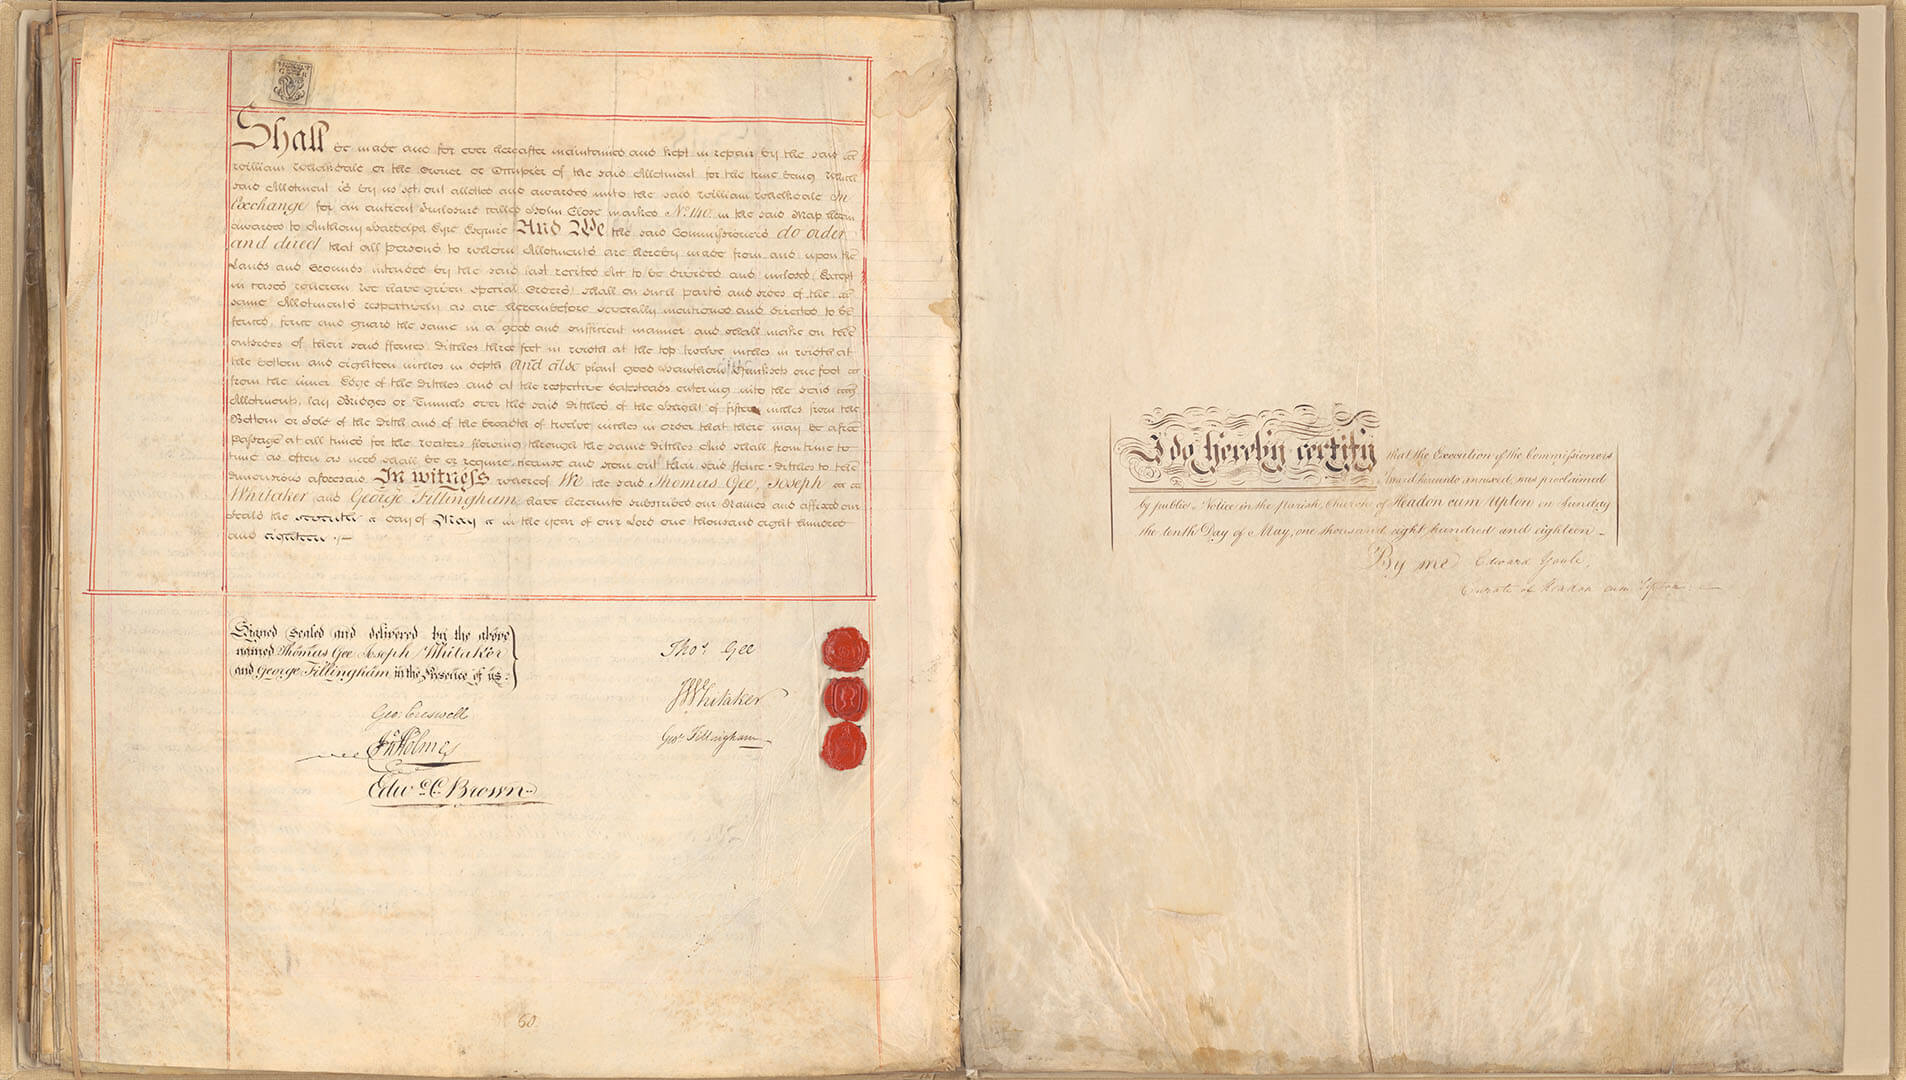 Shall be made and for ever hereafter maintained and kept in repair by the said
William or the Owner or Occupier of the said Allotment for the time being Which
said Allotment is by us set out allotted and awarded unto the said William In
Exchange for an antient Inclosure called Holm Close marked No. 140 in the said Map herein
awarded to Anthony Hardolph Eyre Esquire And We the said Commissioners do order
and direct that all persons to whom Allotments are hereby made from and upon the
Lands and Grounds intended by the said last recited Act to be divided and inclosed (Except
in cases wherein We have given special Orders) shall on such parts and sides of the
same Allotments respectively as are hereinbefore severally mentioned and directed to be
fenced, fence and guard the same in a good and sufficient manner and shall make on the
outsides of their said ffences Ditches three feet in width at the top twelve inches in width at
the bottom and eighteen inches in depth And also plant good Hawthorn Quicksets one foot
from the inner Edge of the Ditches and at the respective Gatesteads entering into the said
Allotments, lay Bridges or Tunnels over the said Ditches of the Height of fifteen inches from the
Bottom or Sole of the Ditch and of the breadth of twelve inches in order that there may be a free
passage at all times for the waters flowing through the same Ditches And shall from time to
time as often as need shall be or require, cleanse and scour out their said ffence-Ditches to the
dimensions aforesaid In witness whereof We the said Thomas Gee, Joseph
Whitaker and George Fillingham have hereunto subscribed our Names and affixed our
Seals the seventh day of May in the year of our Lord one thousand eight hundred
and eighteen
Signed sealed and delivered by the above
named Thomas Gee Joseph Whitaker
and George Fillingham in the Presence of us
Thos. Gee
J Whitaker
Geo. Fillingham
Geo: Creswell
Jn Holmes
Edwd. C. Brown
60
I do hereby certify that the Execution of the Commissioners
Award hereunto annexed was proclaimed
by public Notice in the parish Church of Headon cum Upton on Sunday
the tenth Day of May, one thousand eight hundred and eighteen
By me Edward Youle,
Curate of Headon cum Upton